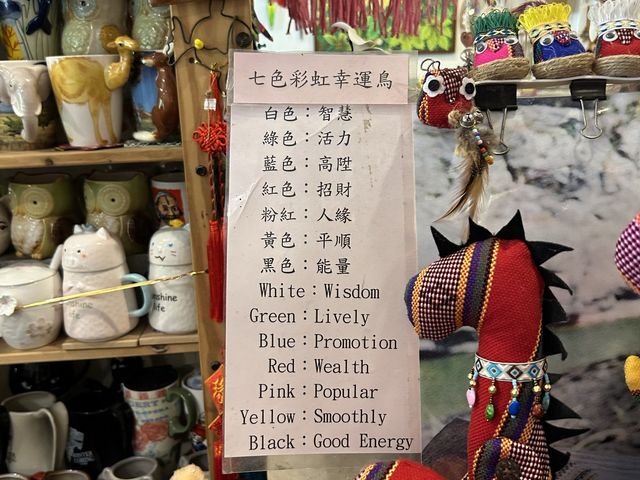 七色彩虹幸運鳥
白色：智慧
綠色：活力
藍色：高陞
紅色：招財
粉紅：人緣
黃色：平順
黑色：能量
White：Wisdom
Green：Lively
Blue：Promotion
Red：Wealth
Pink：Popular
Yellow：Smoothly
Black：Good Energy
nshine
life
nshine
life